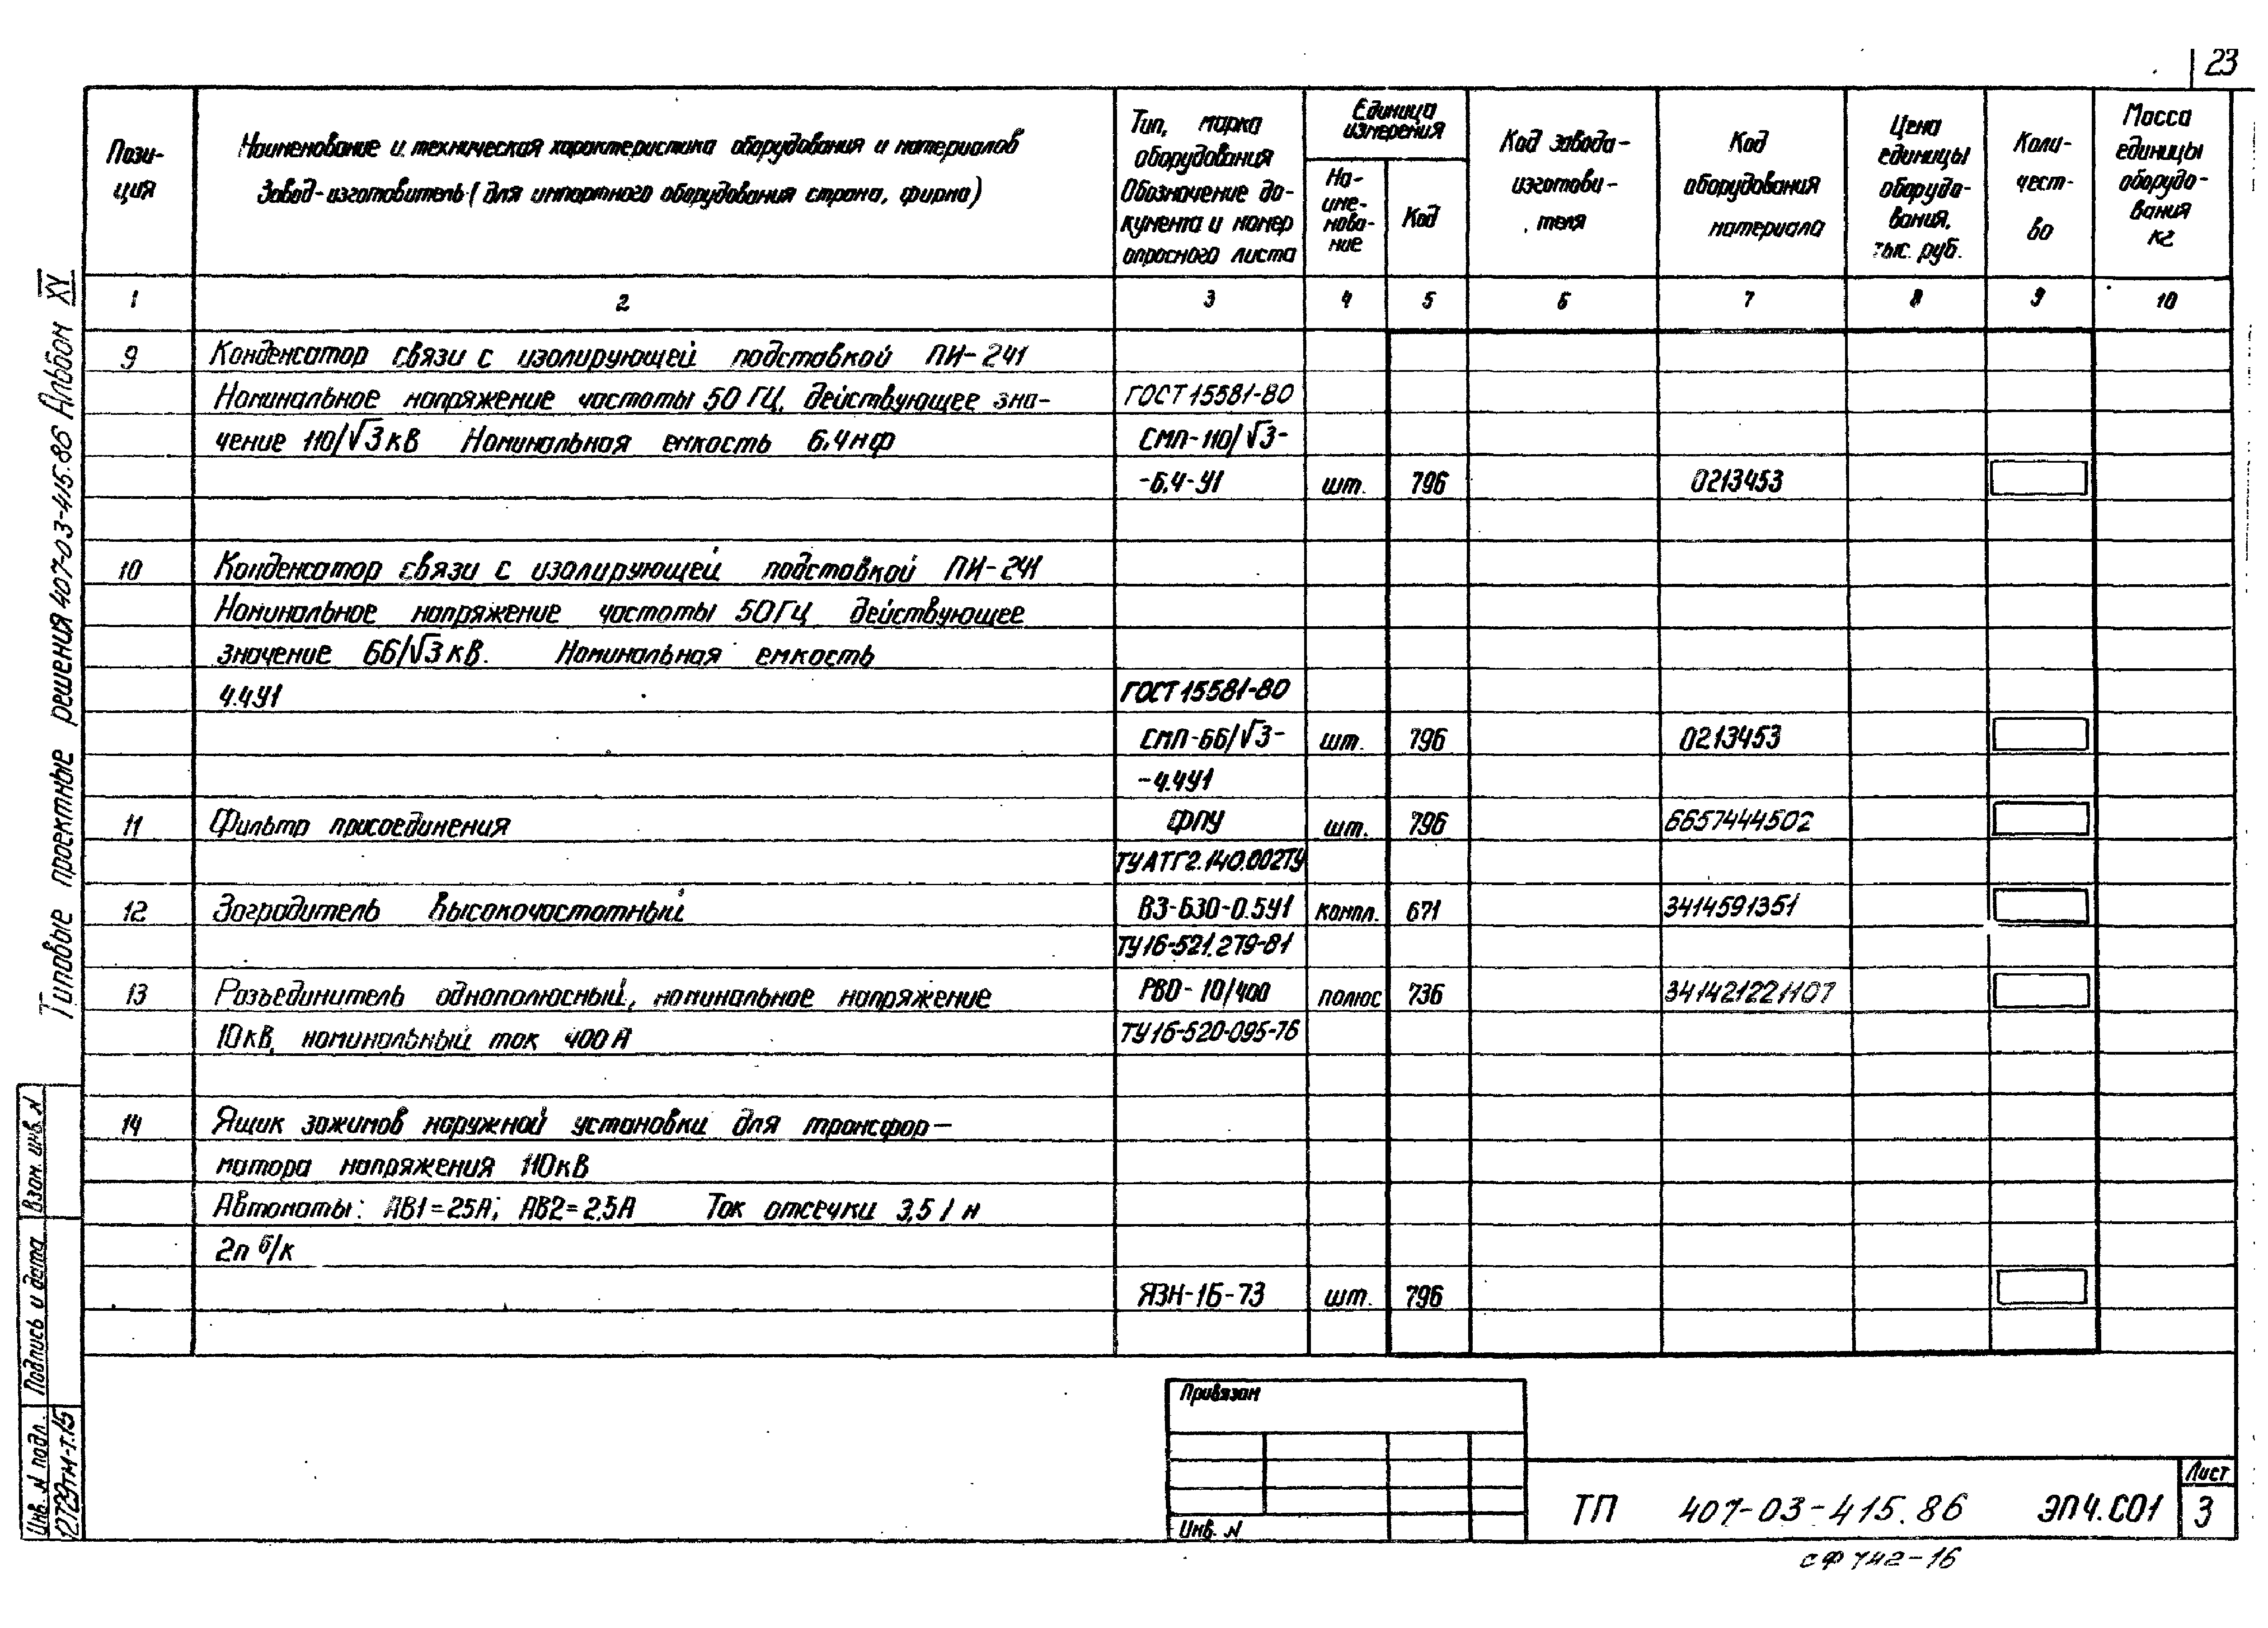 23
Пози-
ция
Наименование и техническая характеристика оборудования и материалов
Завод-изготовитель (для импортного оборудования страна, фирма)
Тип, марка
оборудования
Обозначение до-
кумента и номер
опросного листа
Единица
измерения
На-
име-
нова-
ние
Код
Код завода-
изготови-
теля
Код
оборудования
материала
Цена
единицы
оборудо-
вания,
тыс. руб.
Коли-
чест-
во
Масса
единицы
оборудо-
вания
кг
1 2 3 4 5 6 7 8 9 10
9 Конденсатор связи с изолирующей подставкой ПИ-241
Номинальное напряжение частоты 50 ГЦ, действующее зна- ГОСТ 15581-80
чение 110/√3 кВ Номинальная емкость 6,4 нф СМП-110/√3-
-6,4-У1 шт. 796 0213453
10 Конденсатор связи с изолирующей подставкой ПИ-241
Номинальное напряжение частоты 50ГЦ действующее
значение 66/√3 кВ. Номинальная емкость
4.4У1 ГОСТ 15581-80
СМП-66/√3- шт. 796 0213453
-4.4У1
11 Фильтр присоединения ФПУ шт. 796 6657444502
ТУАТГ2.140.002ТУ
12 Заградитель высокочастотный ВЗ-630-0.5У1 компл. 671 3414591351
ТУ16-521.279-81
13 Разъединитель однополюсный, номинальное напряжение РВО-10/400 полюс 736 341421221107
10кВ, номинальный ток 400 А ТУ16-520-095-76
14 Ящик зажимов наружной установки для трансфор-
матора напряжения 110кВ
Автоматы: АВ1=25А; АВ2=2.5А Ток отсечки 3,5 I н
2п б/к
ЯЗН-1Б-73 шт. 796
Привязан
Инв. N
ТП 407-03-415.86 ЭП4.СО1
Лист
3
сф 742-16
Типовые проектные решения 407-03-415.86 Альбом XV
Взам. инв. N
Подпись и дата
Инв. N подл.
12729тм-т.15